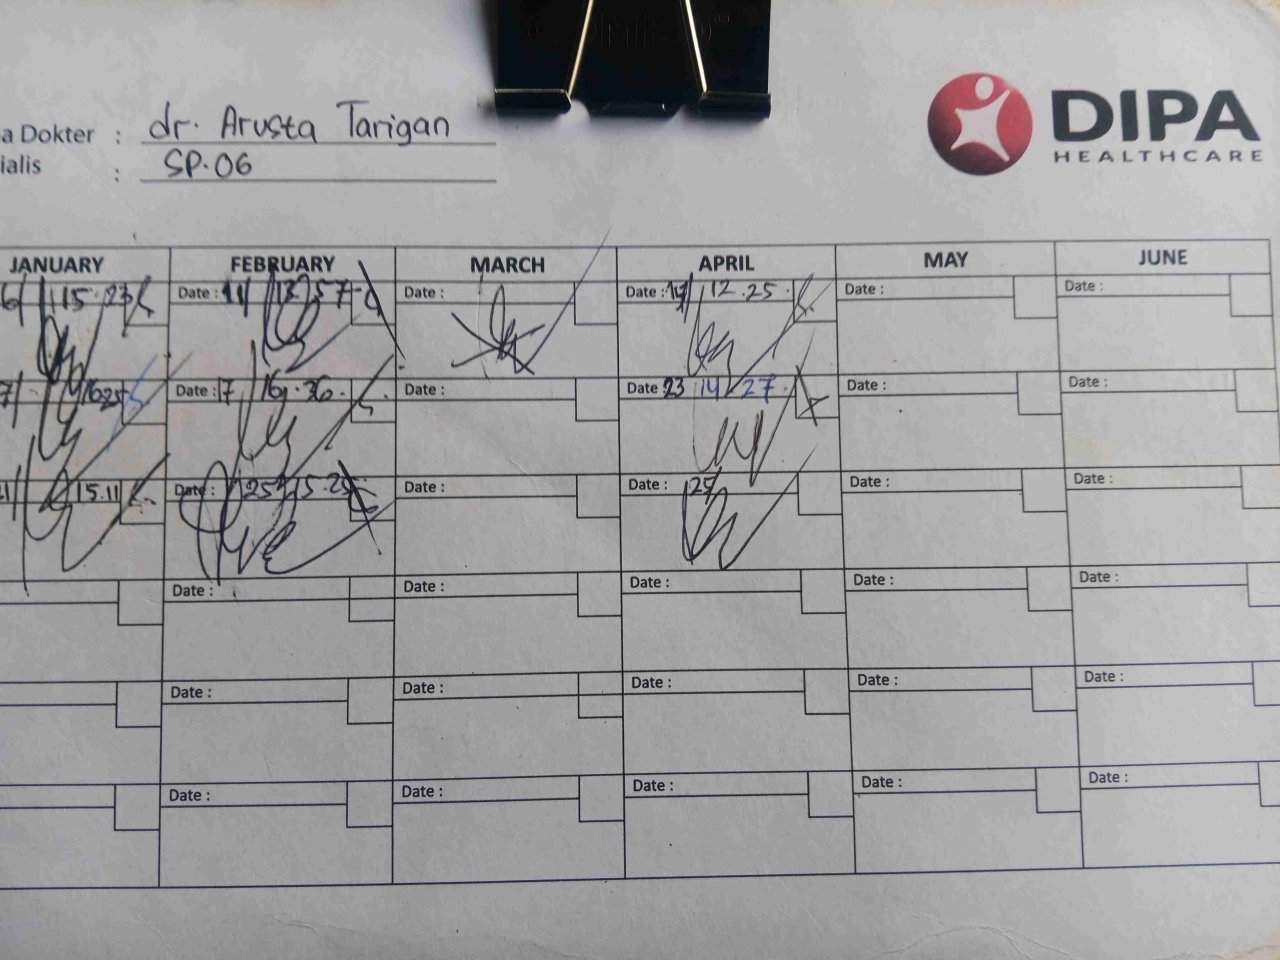 a Dokter : dr. Arusta Tarigan
ialis : SP.06
DIPA
HEALTHCARE
JANUARY FEBRUARY MARCH APRIL MAY JUNE
6/ 15.23 Date : 11/ 12.57 Date : Date : 12.25 Date : Date :
7/ Date : 17 16.36 Date : Date 23 14 27 Date : Date :
15.11 Date : 25/ 15.25 Date : Date : 25 Date : Date :
Date : Date : Date : Date : Date :
Date : Date : Date : Date : Date :
Date : Date : Date : Date : Date :